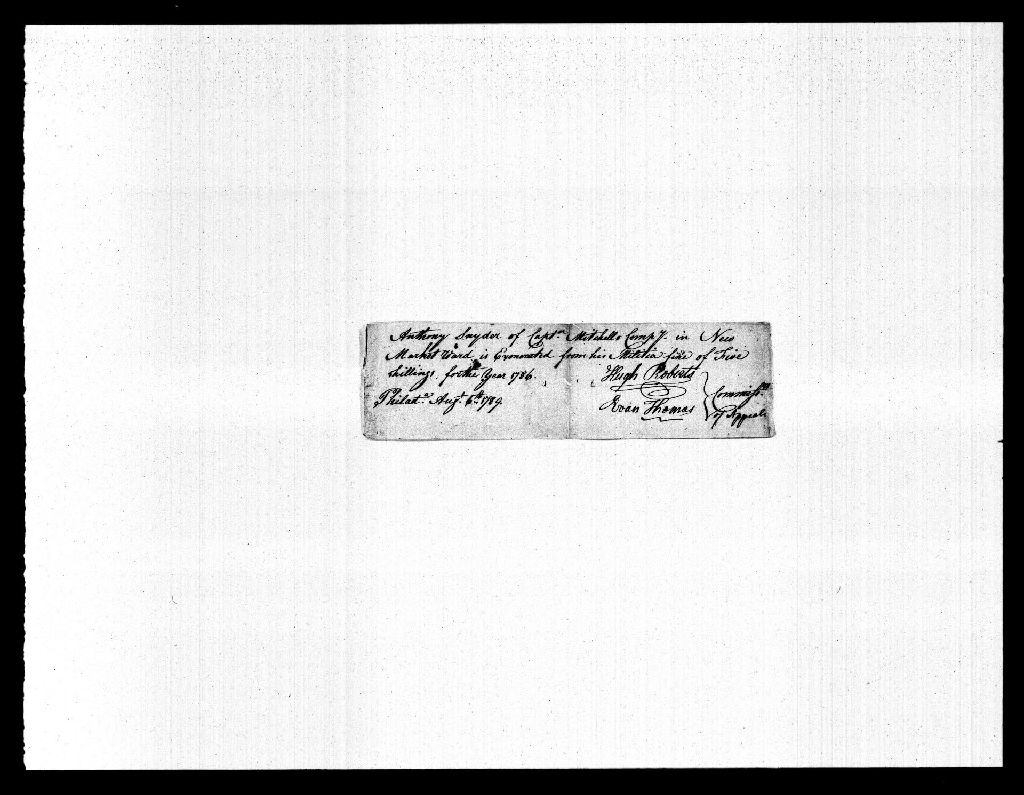 Anthony Snyder of Capt.n Mitchells Comp.y in New
Market Ward is Exonerated from his Militia fine of Five
shillings for the Year 1786.
Hugh Roberts
Philad.a Aug.t 6th 1789.
Evan Thomas
Commiss.rs
of Appeals